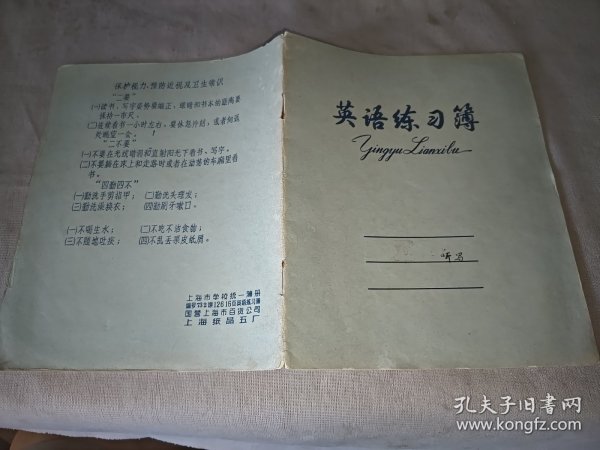 保护视力、预防近视及卫生常识
"二要"
(一)读书、写字姿势要端正，眼睛和书本的距离要
保持一市尺。
(二)连续看书一小时左右，要休息片刻，或者向远
处眺望一会。
"二不要"
(一)不要在光线暗弱和直射阳光下看书、写字。
(二)不要躺在床上和走路时或者在动荡的车厢里看
书。
"四勤四不"
(一)勤洗手剪指甲；(二)勤洗头理发；
(三)勤洗澡换衣；(四)勤刷牙嗽口。
(一)不喝生水；(二)不吃不洁食物；
(三)不随地吐痰；(四)不乱丢果皮纸屑。
上海市学校统一簿册
国营上海市百货公司
上海纸品五厂
英语练习簿
Yingyu Lianxibu
孔夫子旧书网
www.kongfz.com